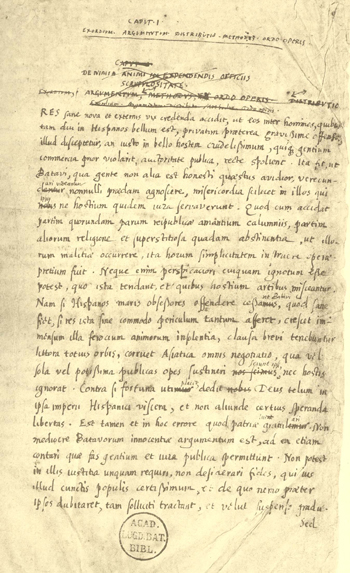 CAPUT · I
EXORDIUM. ARGUMENTUM DISTRIBUTIO. METHODUS. ORDO OPERIS
DE NIMIA ANIMI IN EXPENDENDIS OFFICIIS
SCRUPULOSITATE.
EXORDIUM; ARGUMENTUM, METHODUS ET ORDO OPERIS DISTRIBUTIO
RES sane nova et externis vix credenda accidit, ut eos inter homines, quibus
tam diu in Hispanos bellum est, privatim praeterea gravissime offensos
illud disceptetur, an iusto in bello hostem crudelissimum, quiq gentium
commercia prior violarit, auctoritate publica, recte spolient. Ita fit, ut
Batavi, qua gente non alia est honesti quaestus avidior, verecun-
dentur nonnulli praedam agnoscere, misericordia scilicet in illos qui
ne hostium quidem iura servaverunt. Quod cum accidat
partim quorundam parum reipublicae amantium calumniis, partim
aliorum religione et superstitiosa quadam abstinentia, ut illo-
rum malitiae occurrere, ita horum simplicitatem operae
pretium fuit. Neque enim perspicaciori cuiquam ignotum esse
potest, quo ista tendant, et quibus hostium artibus misceantur.
Nam si Hispanos maris obsessores offendere quod sane
fiet, si res ista sine commodo periculum tantum afferet, crescet im-
mensum illa ferocium animorum clausa brevi tenebuntur
littora totius orbis, corruet Asiatica omnis negotiatio, qua vel
sola vel potissima publicas opes sustineri nec hostis
ignorat. Contra si fortuna dedit Deus telum in
ipsa imperii Hispanici viscera, et non aliunde certius speranda
libertas. Est tamen et in hoc errore quod patriae Non
mediocre Batavorum innocentiae argumentum est, ad ea etiam
contari quae fas gentium et iura publica permittunt. Non potest
in illis iustitia unquam requiri, non desiderari fides, qui ius
illud cunctis populis certissimum, et de quo nemo praeter
ipsos dubitaret, tam solliciti tractant, et velut suspenso gradu.
Sed
ACAD.
LUGD.BAT.
BIBL.